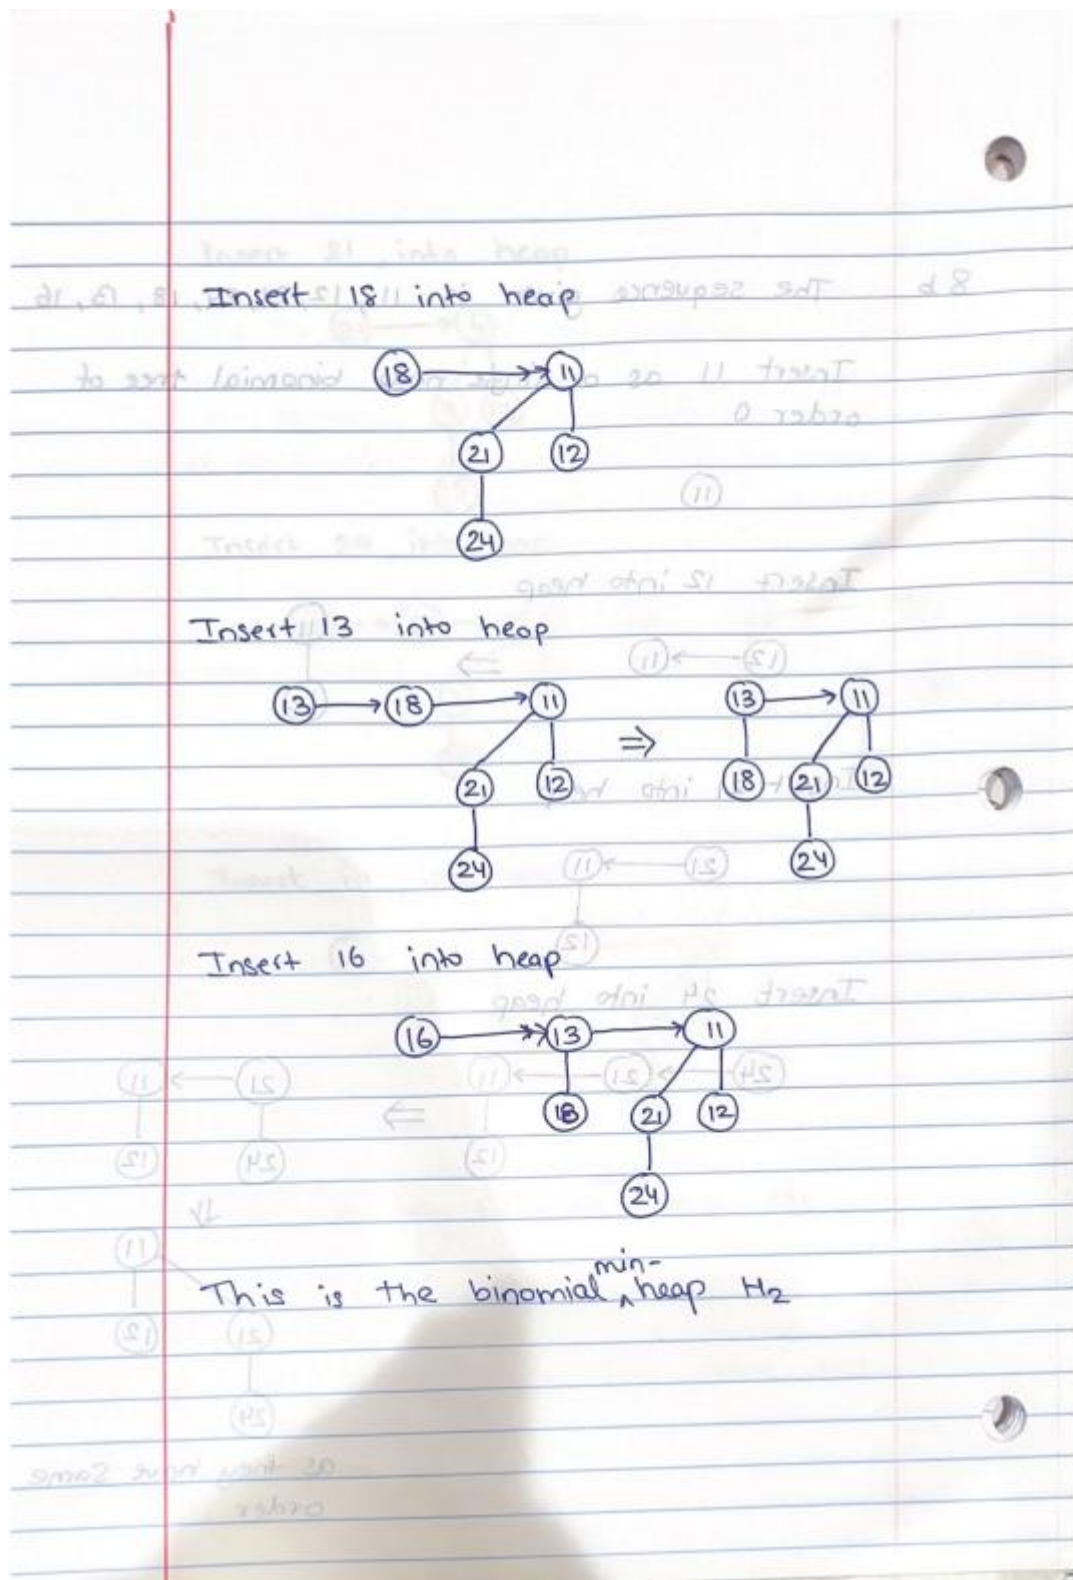 Insert 18 into heap
18 11
21 12
24
Insert 13 into heap
13 18 11 ⇒ 13 11
21 12 18 21 12
24 24
Insert 16 into heap
16 13 11
18 21 12
24
This is the binomial min-heap H2